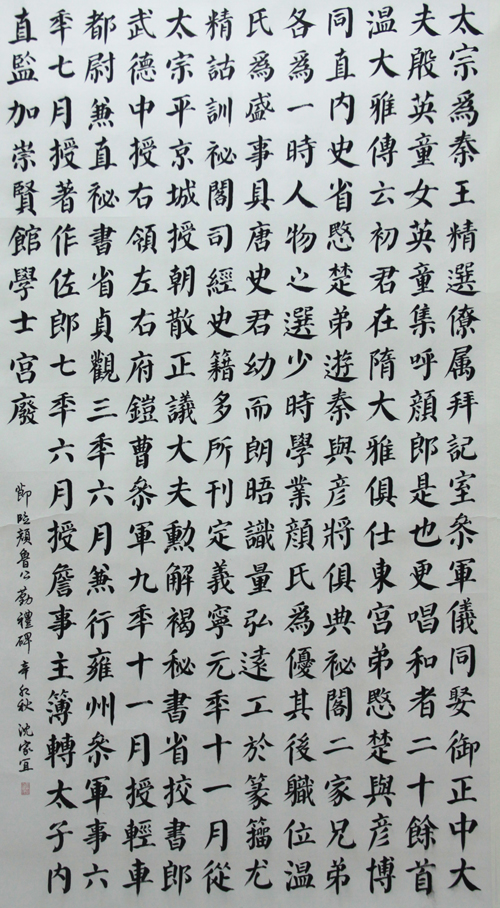 太宗爲秦王精選僚属拜記室叅軍儀同娶御正中大
夫殷英童女英童集呼顔郎是也更唱和者二十餘首
温大雅傳云初君在隋大雅俱仕東宫弟愍楚與彦博
同直内史省愍楚弟遊秦與彦將俱典祕閣二家兄弟
各爲一時人物之選少時學業顔氏爲優其後職位温
氏爲盛事具唐史君幼而朗晤識量弘遠工於篆籀尤
精詁訓祕閣司經史籍多所刊定義寧元秊十一月從
太宗平京城授朝散正議大夫勳解褐秘書省挍書郎
武德中授右領左右府鎧曹叅軍九秊十一月授輕車
都尉兼直祕書省貞觀三秊六月兼行雍州叅軍事六
秊七月授著作佐郎七秊六月授詹事主簿轉太子内
直監加崇賢館學士宫廢
節臨顔魯公勤禮碑 辛卯秋 沈家宜